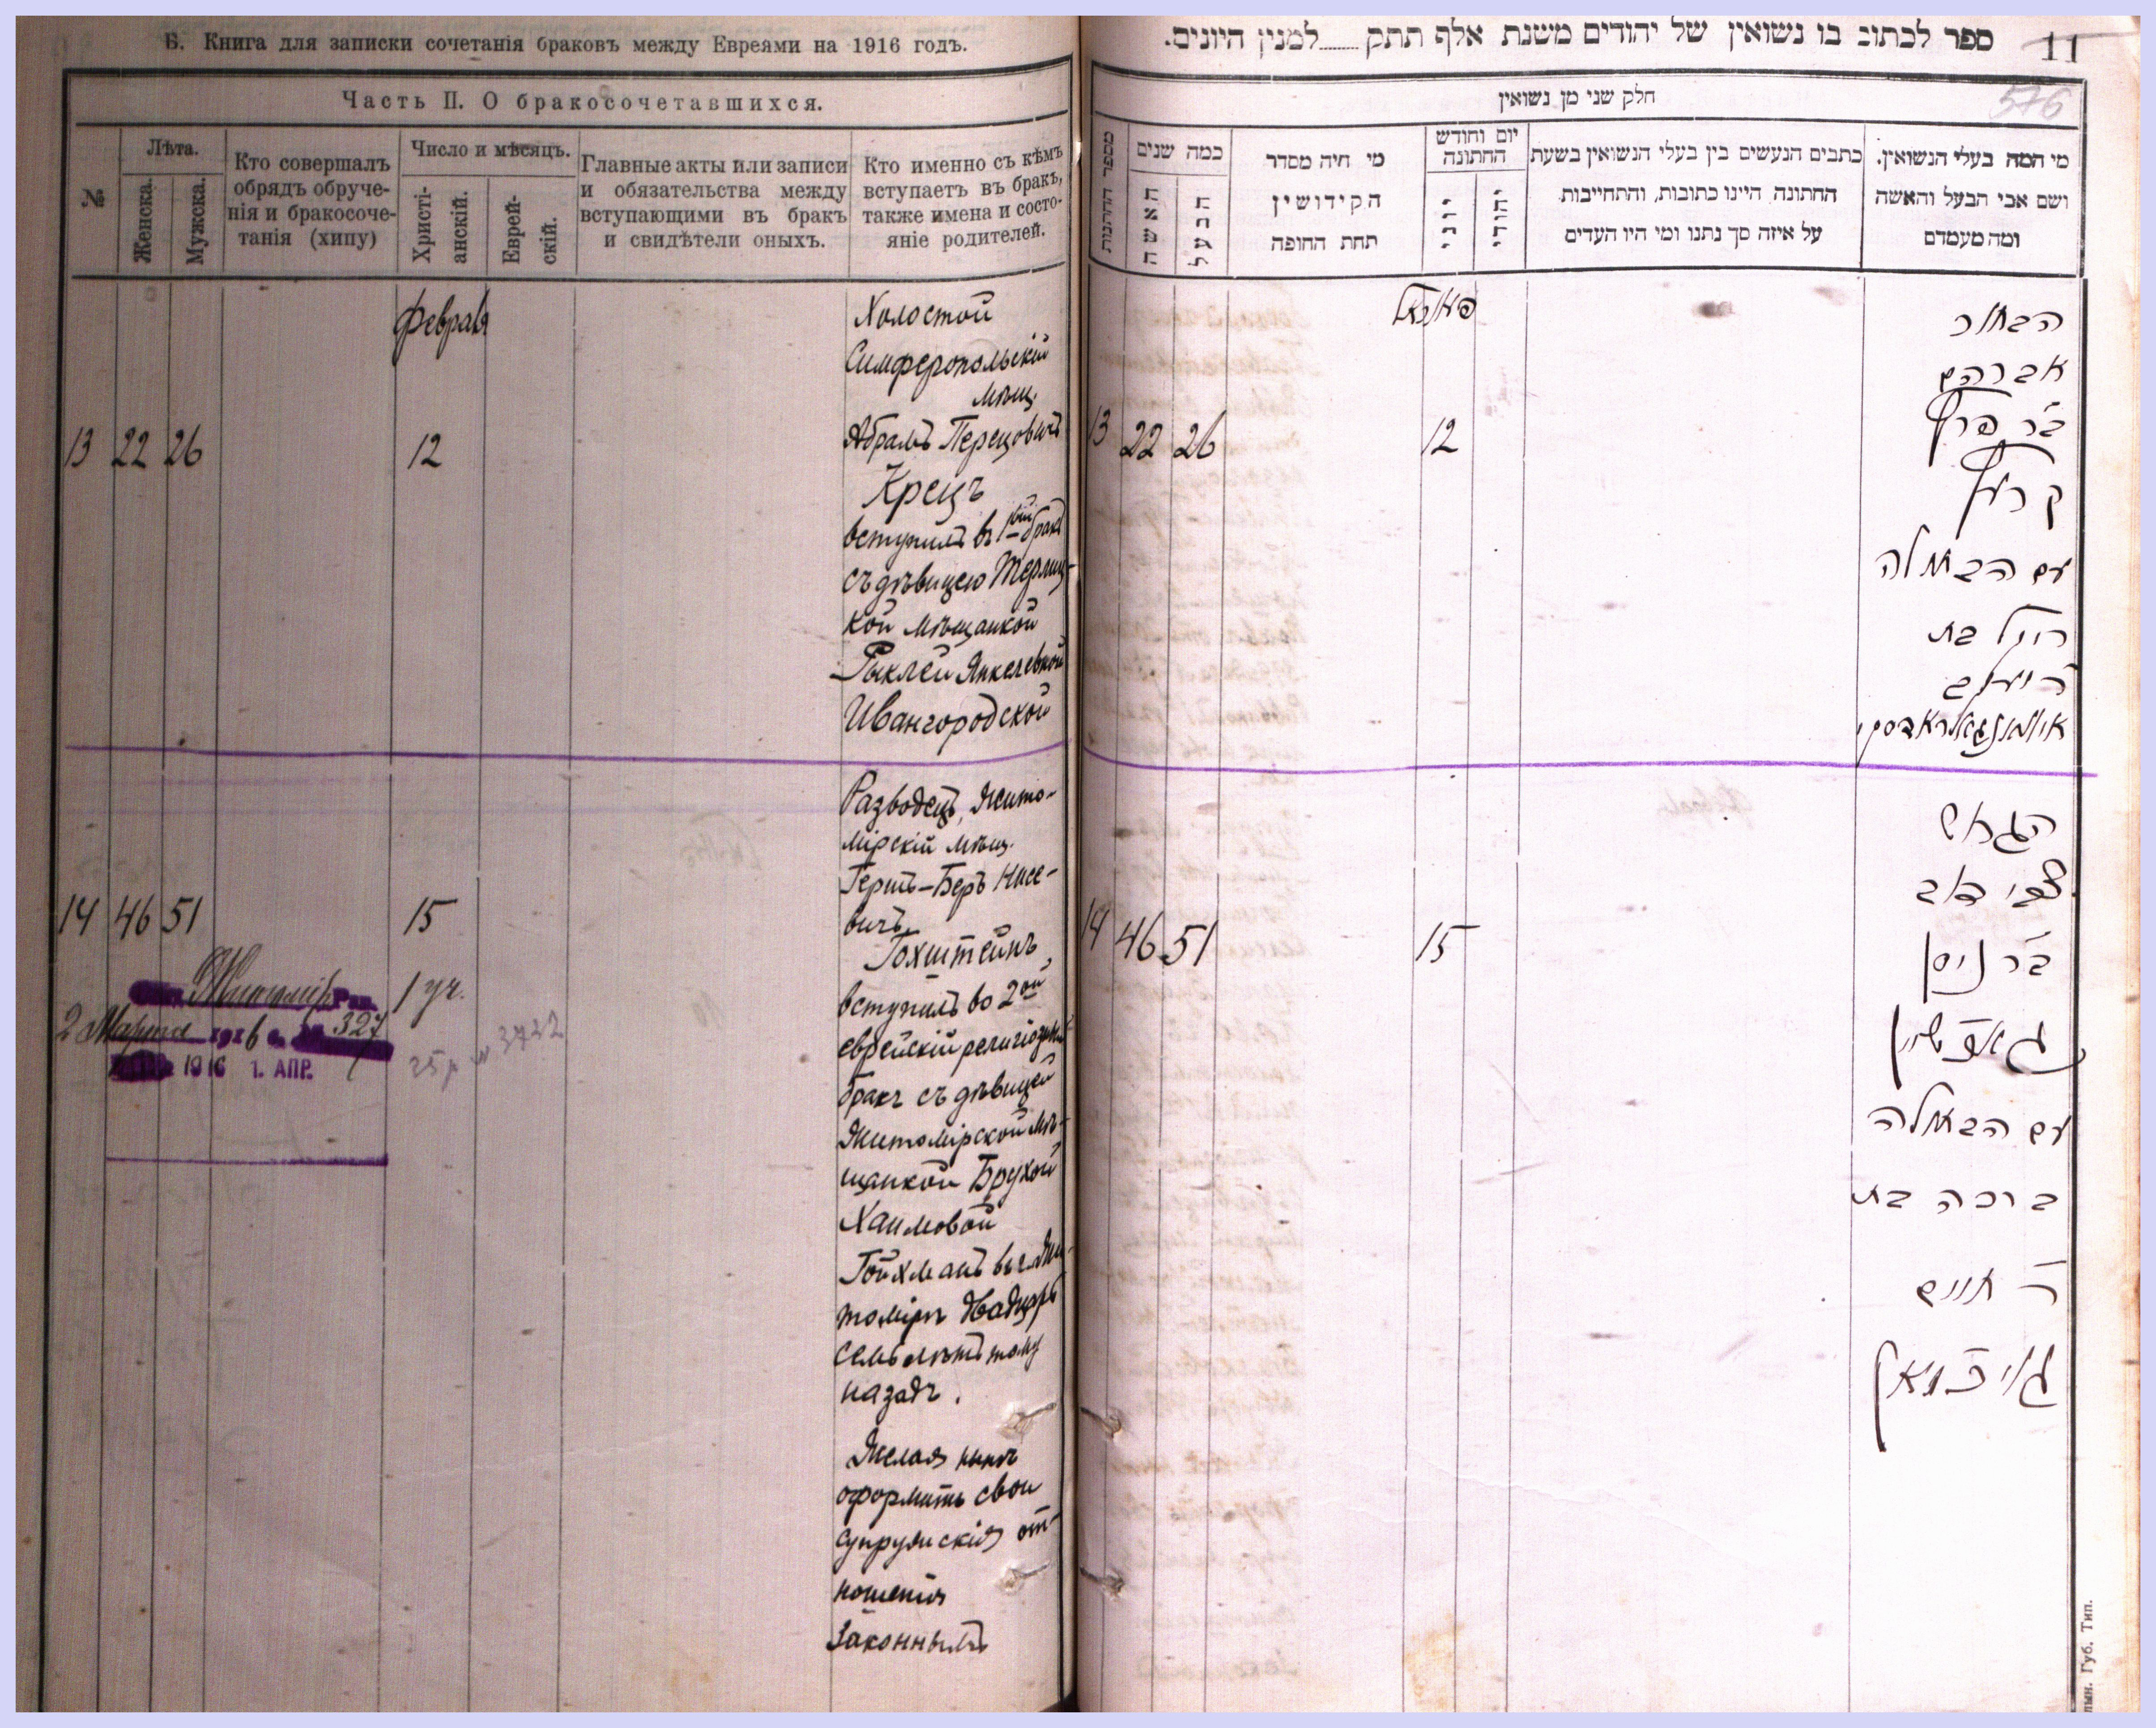 Б. Книга для записки сочетанія браковъ между Евреями на 1916 годъ.
Часть II. О бракосочетавшихся.
№
Лѣта.
Женска.
Мужска.
Кто совершалъ
обрядъ обруче-
нія и бракосоче-
танія (хипу)
Число и мѣсяцъ.
Христі-
анскій.
Еврей-
скій.
Главные акты или записи
и обязательства между
вступающими въ бракъ
и свидѣтели оныхъ.
Кто именно съ кѣмъ
вступаетъ въ бракъ,
также имена и состо-
яніе родителей.
Февраля
13 22 26 12
Холостой
Симферопольскій
мѣщ.
Абрамъ Перецовичъ
Крецъ
вступилъ въ 1ый бракъ
съ дѣвицею
кой мѣщанкой
Рыклей Янкелевной
Ивангородской
14 46 51 15
Разводецъ, Жито-
мірскій мѣщ.
Герш-Беръ Нисе-
вичъ
Гохштейнъ,
вступилъ во 2ой
еврейскій религіозный
бракъ съ дѣвицей
Житомірской мѣ-
щанкой Брухой
Хаимовой
Гойхманъ въ г. Жи-
томірѣ двадцать
семь лѣтъ тому
назадъ.
Желая нынѣ
оформить свои
супружескія от-
ношенія
законнымъ
1 уч.
2 Марта 1916 г. 327
1916 1. АПР.
25 р 3722
ספר לכתוב בו נשואין של יהודים משנת אלף תתק למנין היונים.
11
576
חלק שני מן נשואין
כמה שנים
האשה
הבעל
מי היה מסדר
הקידושין
תחת החופה
יום וחודש
החתונה
יוני
יהודי
כתבים הנעשים בין בעלי הנשואין בשעת
החתונה היינו כתובות, והתחייבות
על איזה סך נתנו ומי היו העדים
מי המה בעלי הנשואין.
ושם אבי הבעל והאשה
ומה מעמדם
13 22 26 12
הבחור
אברהם
ב״ר פרץ
קרעץ
עם הבתולה
רייקל בת
ר׳ יעקב
14 46 51 15
הגרוש
צבי דוב
ב״ר ניסן
גאכשטיין
עם הבתולה
ברכה בת
ר׳ חיים
גויכמאן
Губ. Тип.